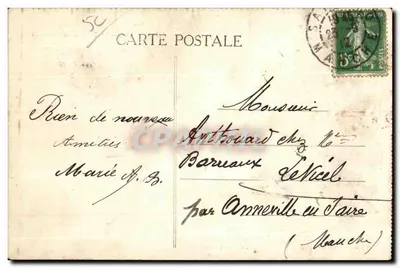 5c
CARTE POSTALE
Rien de nouveau
Amitiés
Marie A. B.
Monsieur
Anthouard chez Me
Barreaux
Le Vicel
par Anneville en Saire
(Manche)